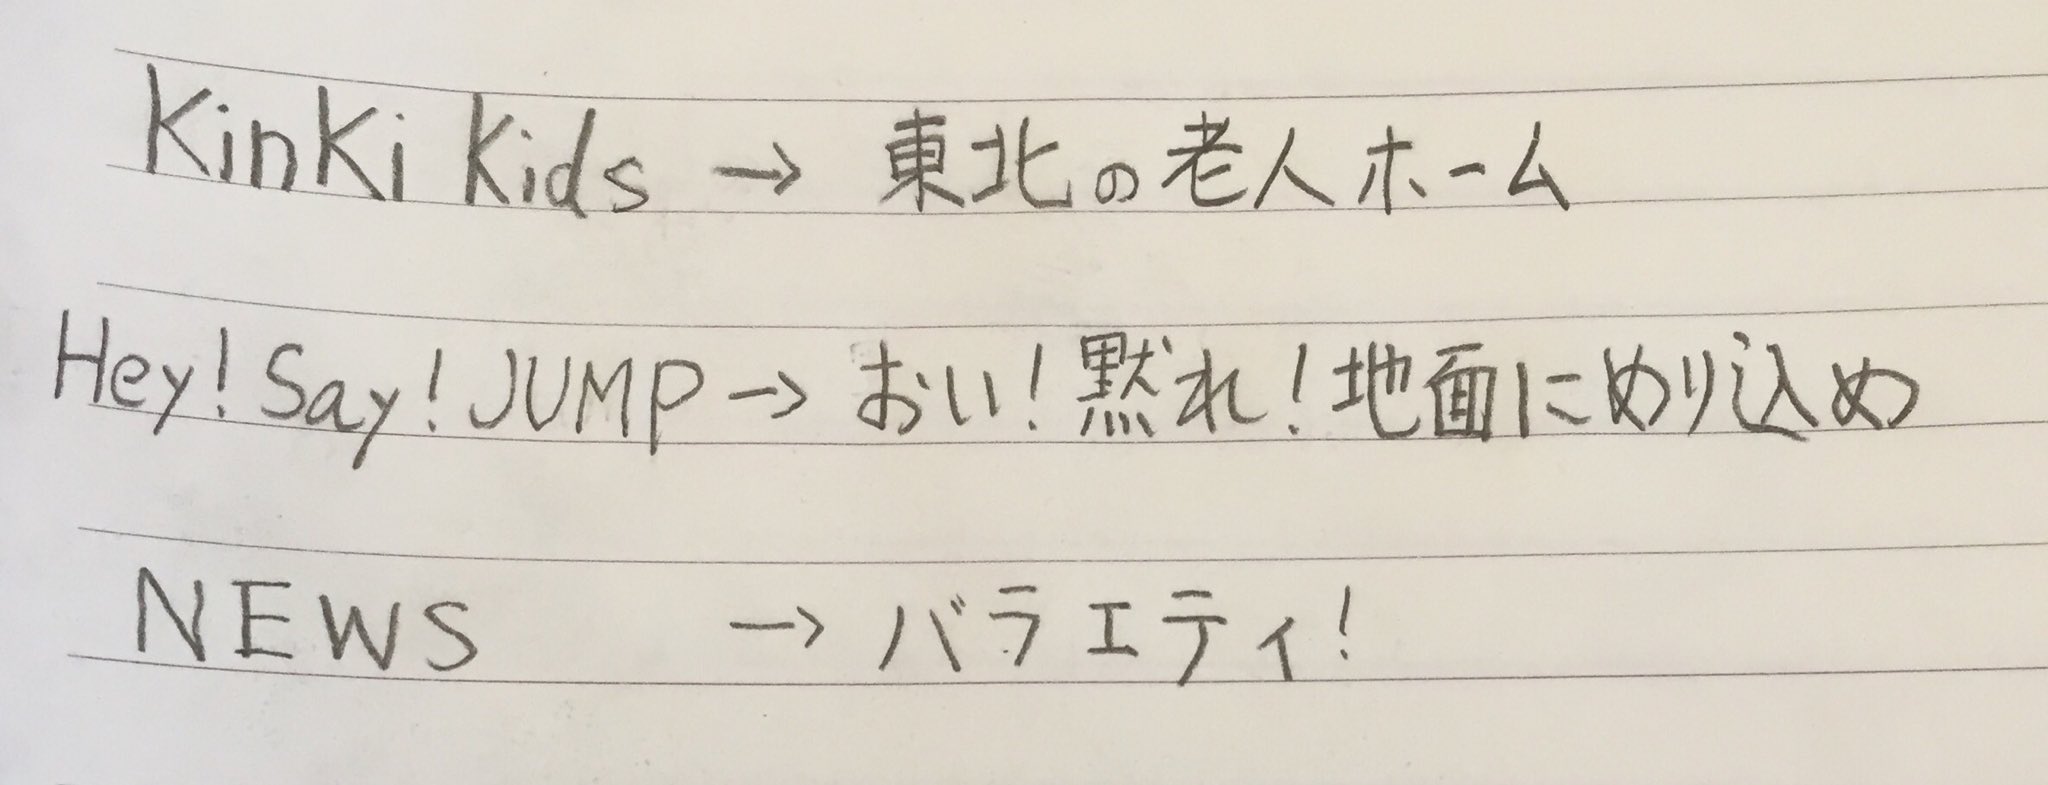 KinKi Kids → 東北の老人ホーム
Hey! Say! JUMP → おい！黙れ！地面にめり込め
NEWS → バラエティ！